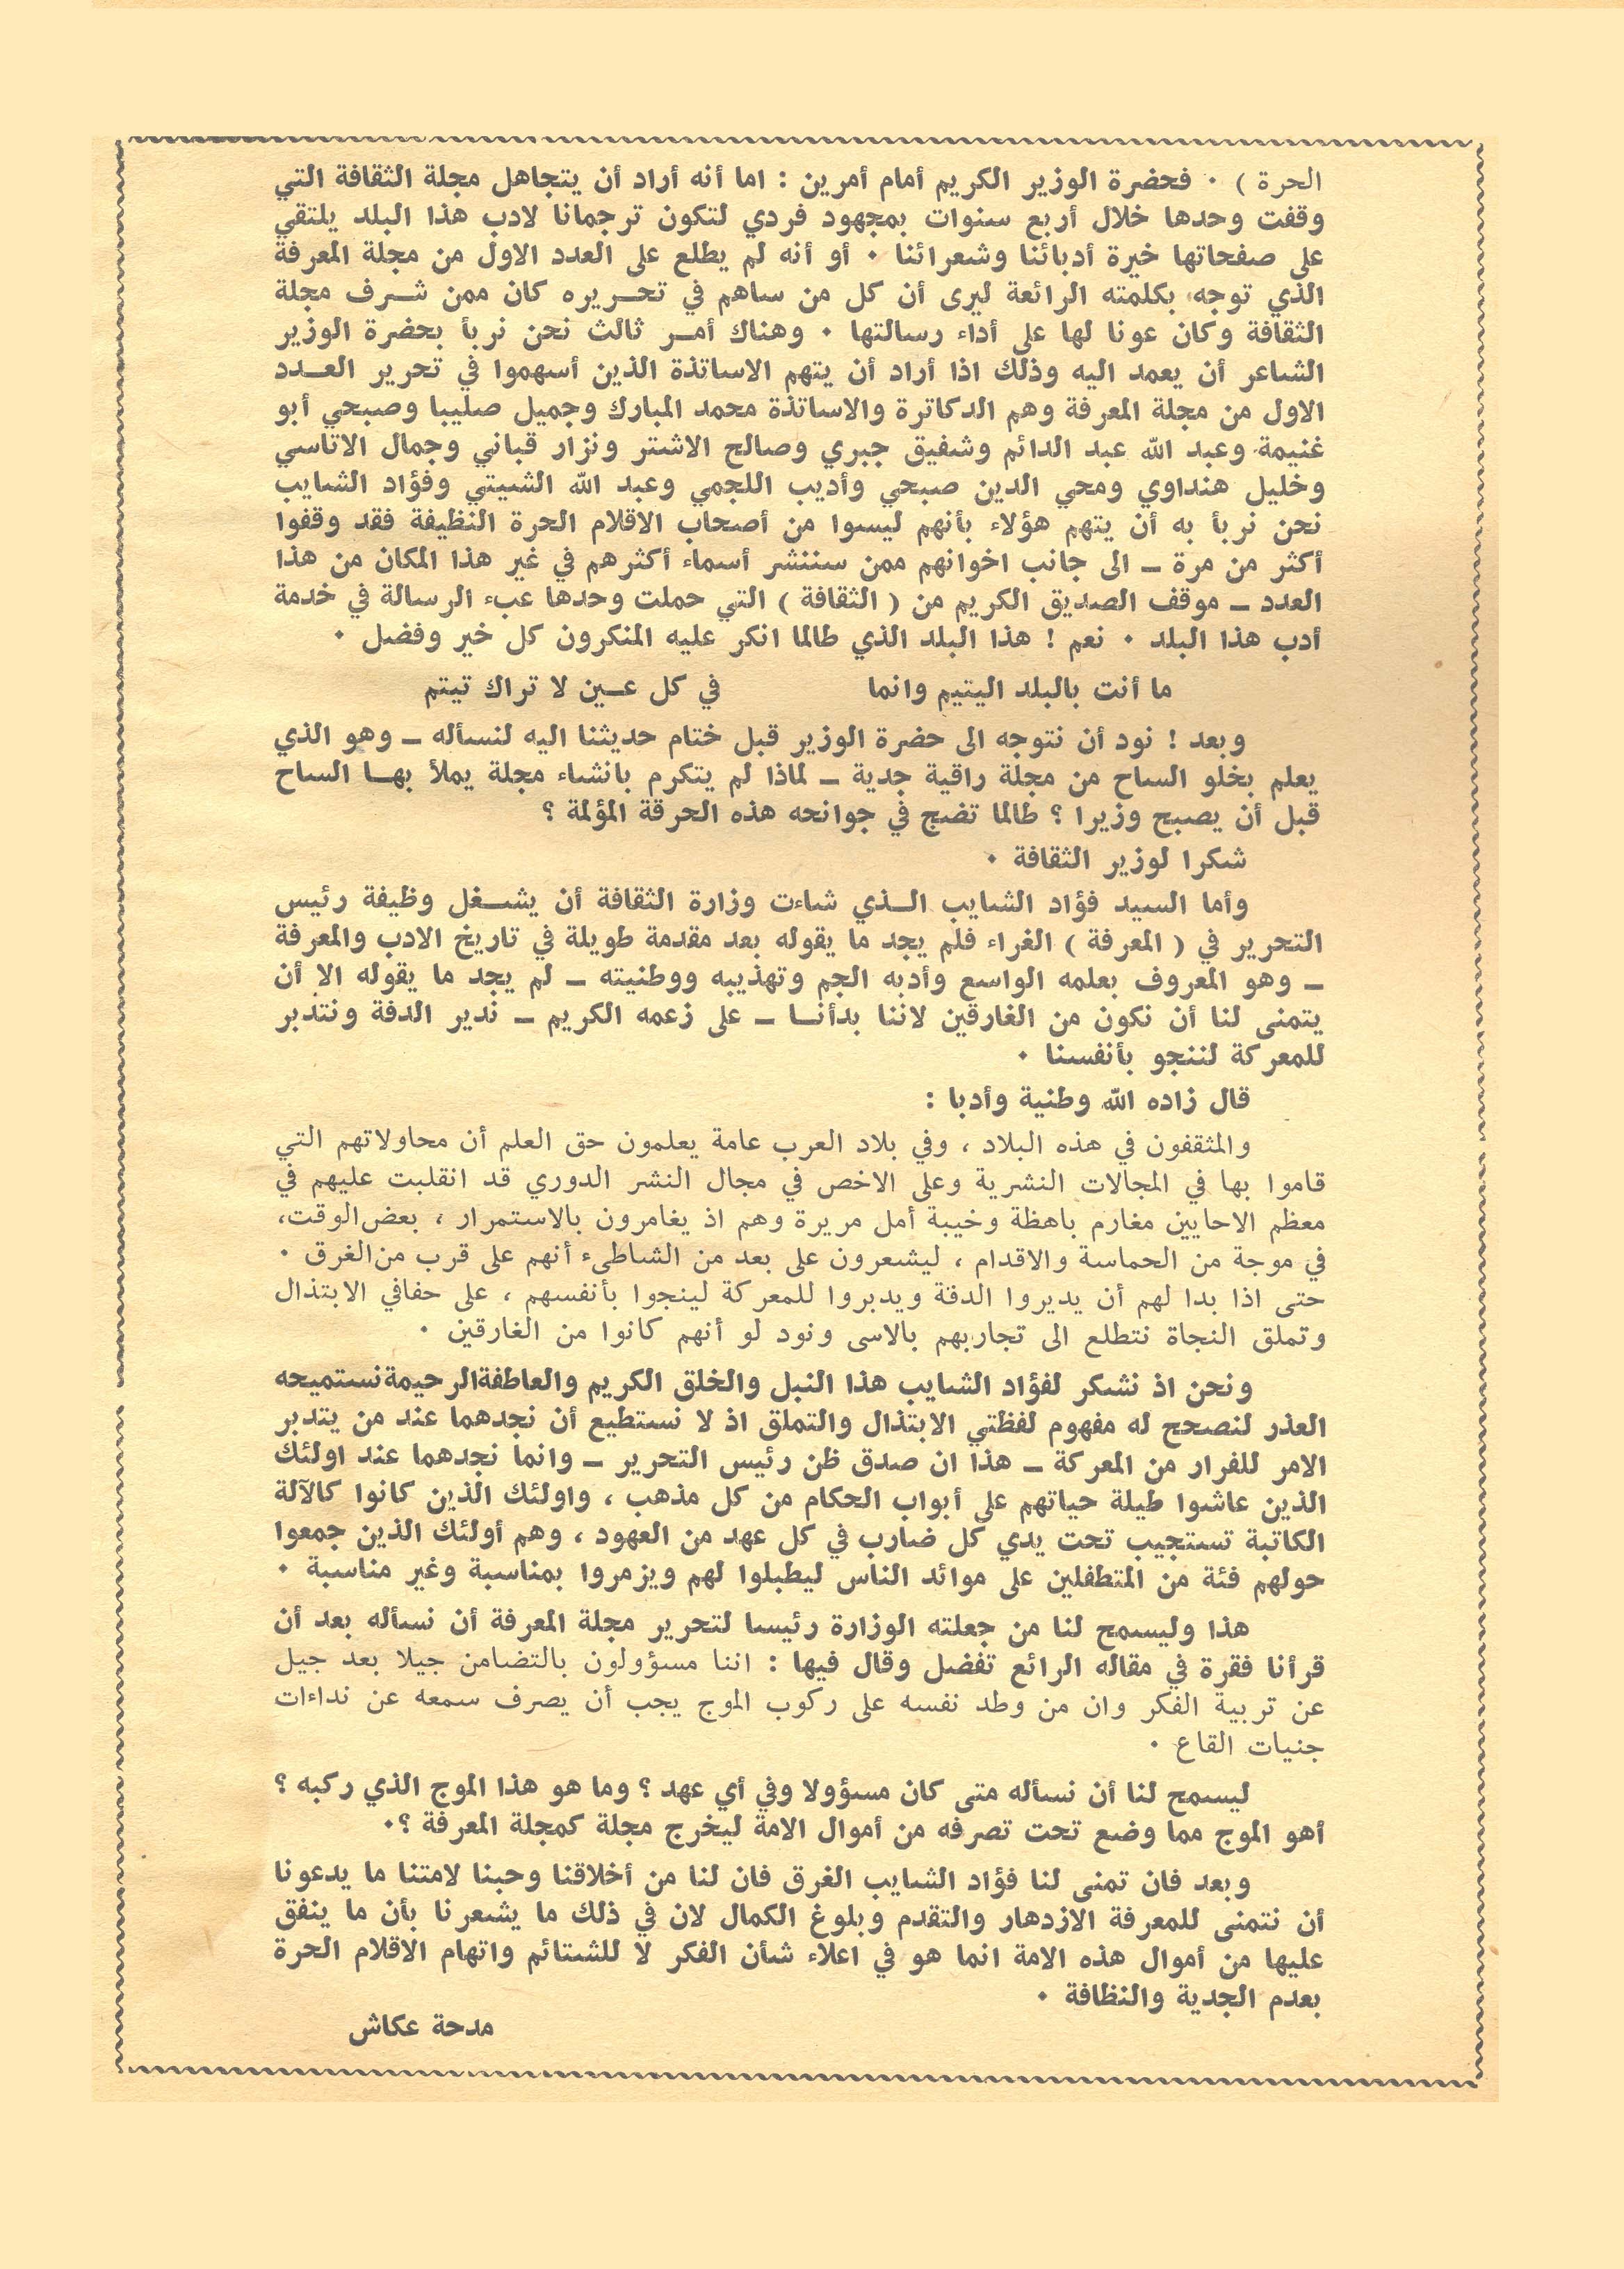 الحرة ) ٠ فحضرة الوزير الكريم أمام أمرين : اما أنه أراد أن يتجاهل مجلة الثقافة التي
وقفت وحدها خلال أربع سنوات بمجهود فردي لتكون ترجمانا لادب هذا البلد يلتقي
على صفحاتها خيرة أدبائنا وشعرائنا ٠ أو أنه لم يطلع على العدد الاول من مجلة المعرفة
الذي توجه بكلمته الرائعة ليرى أن كل من ساهم في تحـريره كان ممن شـرف مجلة
الثقافة وكان عونا لها على أداء رسالتها ٠ وهناك أمـر ثالث نحن نربأ بحضرة الوزير
الشاعر أن يعمد اليه وذلك اذا أراد أن يتهم الاساتذة الذين أسهموا في تحرير العـدد
الاول من مجلة المعرفة وهم الدكاترة والاساتذة محمد المبارك وجميل صليبا وصبحي أبو
غنيمة وعبد الله عبد الدائم وشفيق جبري وصالح الاشتر ونزار قباني وجمال الاتاسي
وخليل هنداوي ومحي الدين صبحي وأديب اللجمي وعبد الله الشيتي وفؤاد الشايب
نحن نربأ به أن يتهم هؤلاء بأنهم ليسوا من أصحاب الاقلام الحرة النظيفة فقد وقفوا
أكثر من مرة ـ الى جانب اخوانهم ممن سننشر أسماء أكثرهم في غير هذا المكان من هذا
العدد ـ موقف الصديق الكريم من ( الثقافة ) التي حملت وحدها عبء الرسالة في خدمة
أدب هذا البلد ٠ نعم ! هذا البلد الذي طالما انكر عليه المنكرون كل خير وفضل ٠
ما أنت بالبلد اليتيم وانما في كل عـين لا تراك تيتم
وبعد ! نود أن نتوجه الى حضرة الوزير قبل ختام حديثنا اليه لنسأله ـ وهو الذي
يعلم بخلو الساح من مجلة راقية جدية ـ لماذا لم يتكرم بانشاء مجلة يملأ بهـا الساح
قبل أن يصبح وزيرا ؟ طالما تضج في جوانحه هذه الحرقة المؤلمة ؟
شكرا لوزير الثقافة ٠
وأما السيد فؤاد الشايب الـذي شاءت وزارة الثقافة أن يشـغل وظيفة رئيس
التحرير في ( المعرفة ) الغراء فلم يجد ما يقوله بعد مقدمة طويلة في تاريخ الادب والمعرفة
ـ وهو المعروف بعلمه الواسع وأدبه الجم وتهذيبه ووطنيته ـ لم يجد ما يقوله الا أن
يتمنى لنا أن نكون من الغارقين لاننا بدأنـا ـ على زعمه الكريم ـ ندير الدفة ونتدبر
للمعركة لننجو بأنفسنا ٠
قال زاده الله وطنية وأدبا :
والمثقفون في هذه البلاد ، وفي بلاد العرب عامة يعلمون حق العلم أن محاولاتهم التي
قاموا بها في المجالات النشرية وعلى الاخص في مجال النشر الدوري قد انقلبت عليهم في
معظم الاحايين مغارم باهظة وخيبة أمل مريرة وهم اذ يغامرون بالاستمرار ، بعض الوقت،
في موجة من الحماسة والاقدام ، ليشعرون على بعد من الشاطىء أنهم على قرب من الغرق ٠
حتى اذا بدا لهم أن يديروا الدقة ويدبروا للمعركة لينجوا بأنفسهم ، على حفافي الابتذال
وتملق النجاة نتطلع الى تجاربهم بالاسى ونود لو أنهم كانوا من الغارقين ٠
ونحن اذ نشكر لفؤاد الشايب هذا النبل والخلق الكريم والعاطفة الرحيمة نستميحه
العذر لنصحح له مفهوم لفظتي الابتذال والتملق اذ لا نستطيع أن نجدهما عند من يتدبر
الامر للفرار من المعركة ـ هذا ان صدق ظن رئيس التحرير ـ وانما نجدهما عند اولئك
الذين عاشوا طيلة حياتهم على أبواب الحكام من كل مذهب ، واولئك الذين كانوا كالآلة
الكاتبة تستجيب تحت يدي كل ضارب في كل عهد من العهود ، وهم أولئك الذين جمعوا
حولهم فئة من المتطفلين على موائد الناس ليطبلوا لهم ويزمروا بمناسبة وغير مناسبة ٠
هذا وليسمح لنا من جعلته الوزارة رئيسا لتحرير مجلة المعرفة أن نسأله بعد أن
قرأنا فقرة في مقاله الرائع تفضل وقال فيها : اننا مسؤولون بالتضامن جيلا بعد جيل
عن تربية الفكر وان من وطد نفسه على ركوب الموج يجب أن يصرف سمعه عن نداءات
جنيات القاع ٠
ليسمح لنا أن نسأله متى كان مسؤولا وفي أي عهد ؟ وما هو هذا الموج الذي ركبه ؟
أهو الموج مما وضع تحت تصرفه من أموال الامة ليخرج مجلة كمجلة المعرفة ؟٠
وبعد فان تمنى لنا فؤاد الشايب الغرق فان لنا من أخلاقنا وحبنا لامتنا ما يدعونا
أن نتمنى للمعرفة الازدهار والتقدم وبلوغ الكمال لان في ذلك ما يشعرنا بأن ما ينفق
عليها من أموال هذه الامة انما هو في اعلاء شأن الفكر لا للشتائم واتهام الاقلام الحرة
بعدم الجدية والنظافة ٠
مدحة عكاش